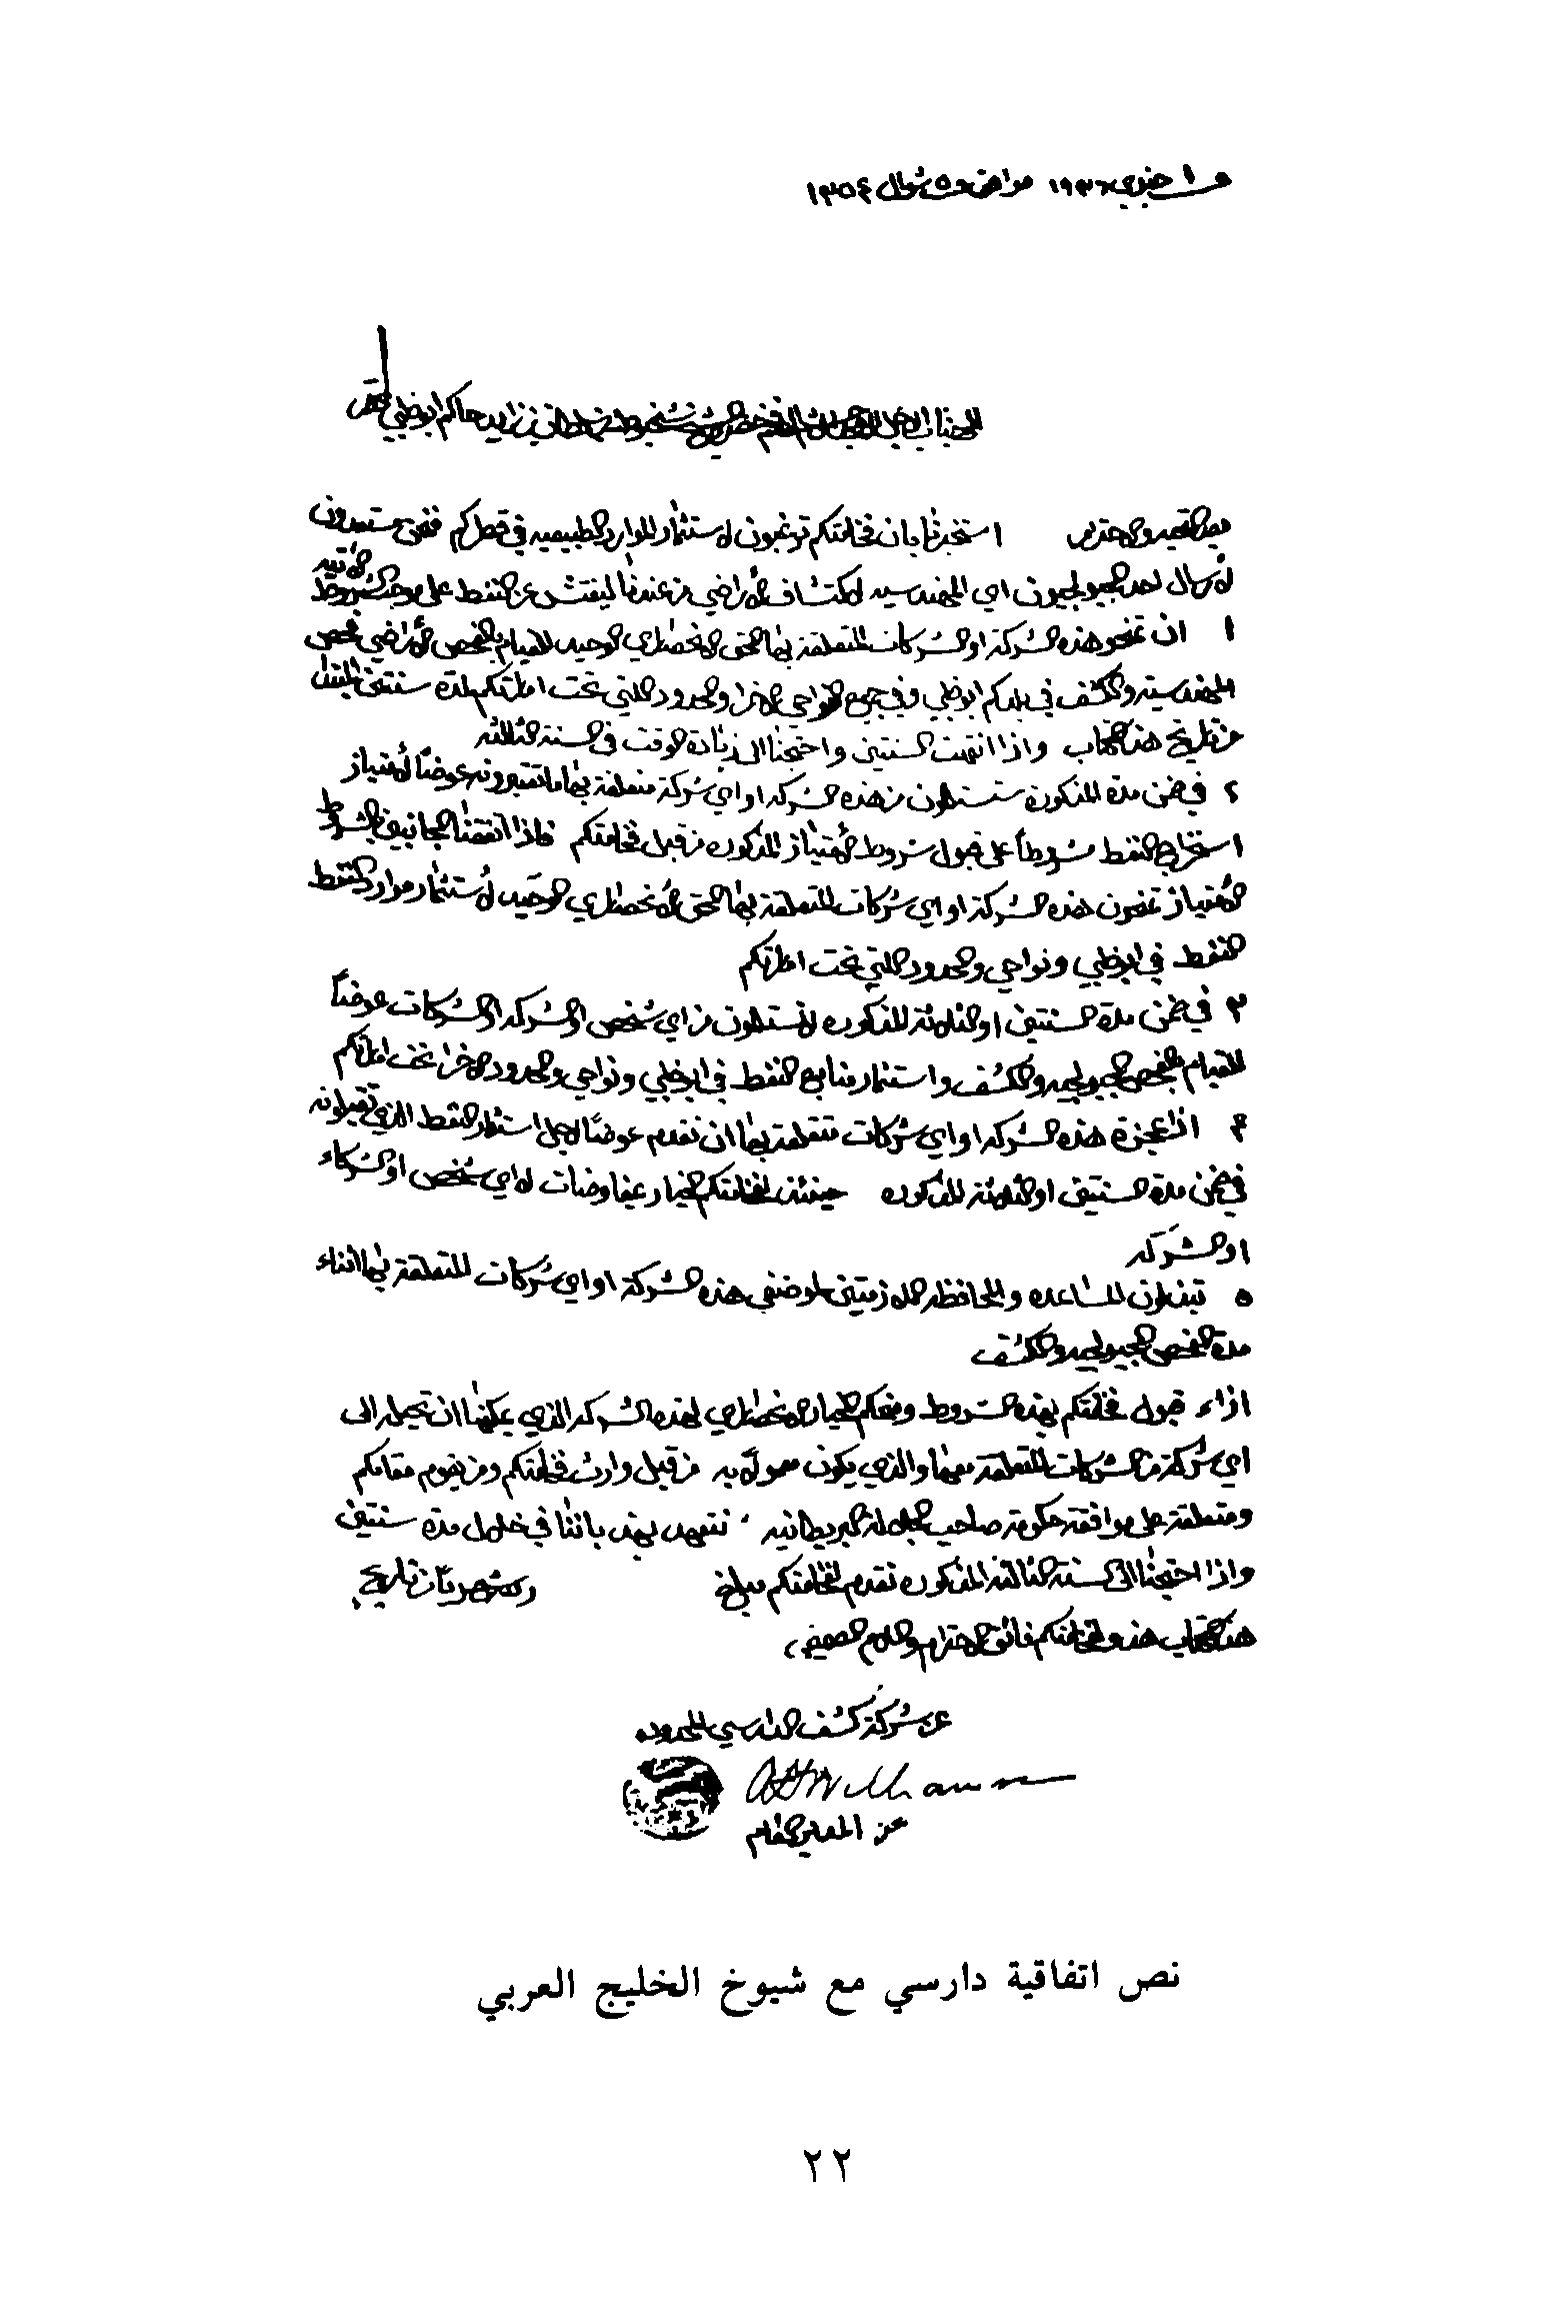 في ١ جنوري ١٩٣٦ موافق ٥ شوال ١٣٥٤
الجناب الاجل الشيخ شخبوط بن سلطان بن زايد حاكم ابوظبي المحترم
بعد التحية والاحترام استخبرنا بان فخامتكم ترغبون لاستثمار الموارد الطبيعيه في قطركم فنحن مستعدون
لأرسال احد الجيولجيون اي المهندسيه لاكتشاف الأراضي من عندنا ليفتش عن النفط على موجب الشروط الآتيه
١ ان تمنحو هذه الشركة او الشركات المتعلقة بها الحق الانحصاري الوحيد للقيام بالفحص الأراضي فحص
المهندسيه والكشف في بلدكم ابوظبي وفي جميع النواحي الاخرا والحدود اللتي تحت امارتكم لمدة سنتين
من تاريخ هذا الكتاب واذا انتهت السنتين واحتجنا الى زيادة الوقت في السنة الثالثه
٢ في ضمن مدة المذكورة ستستلمون من هذه الشركه او اي شركة متعلقة بها عوضاً لأمتياز
استخراج النفط مشروطاً على قبول شروط الأمتياز المذكوره من قبل فخامتكم فاذا اتفقنا الجانبين بالشروط
الأمتياز تمنحون هذه الشركة او اي شركات المتعلقة بها الحق الأنحصاري الوحيد لأستثمار موارد النفط
النفط في ابوظبي ونواحي والحدود اللتي تحت امارتكم
٣ في ضمن مدة السنتين او الثلاثة المذكوره لا تستلمون من اي شخص او الشركه او الشركات عوضاً
للقيام بالفحص الجيولجيه والكشف واستثمار منابع النفط في ابوظبي ونواحي والحدود الاخرا تحت امارتكم
٤ اذا عجزة هذه الشركه او اي شركات متعلقة بها ان تقدم عوضاً لاجل استثمار النفط الذي تقبلونه
في ضمن مدة السنتين او الثلاثة المذكوره حينئذ لفخامتكم الخيار مفاوضات لاي شخص او الشركاء
او الشركه
٥ تبذلون المساعده والمحافظه اللازمتين لموضفي هذه الشركة او اي شركات المتعلقة بها اثناء
مدة الفحص الجيولجيه والكشف
ازاء قبول فخامتكم بهذه الشروط ومنحكم الخيار الانحصاري لهذه الشركه الذي يمكنها ان تحيله الى
اي شركة من الشركات المتعلقة معها والذي يكون معمولاً به من قبل وارث فخامتكم ومن يقوم مقامكم
ومتعلقة على موافقة حكومة صاحب الجلالة البريطانيه نتعهد بهذا باننا في خلال مدة سنتين
واذا احتجنا الى السنة الثالثة المذكوره نقدم لفخامتكم مبلغ تاريخ
هذا الكتاب هذا ولفخامتكم فائق الاحترام والسلام
عن شركة كشف الدارسي المحدوده
عن المدير العام
نص اتفاقية دارسي مع شيوخ الخليج العربي
٢٢